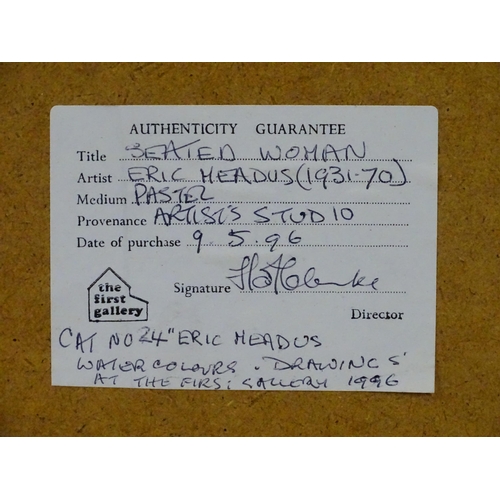 AUTHENTICITY GUARANTEE
Title SEATED WOMAN
Artist ERIC MEADUS (1931-70)
Medium PASTEL
Provenance ARTIST'S STUDIO
Date of purchase 9.5.96
the
first
gallery
Signature
Director
CAT NO 24 "ERIC MEADUS
WATERCOLOURS. DRAWINGS'
AT THE FIRST GALLERY 1996